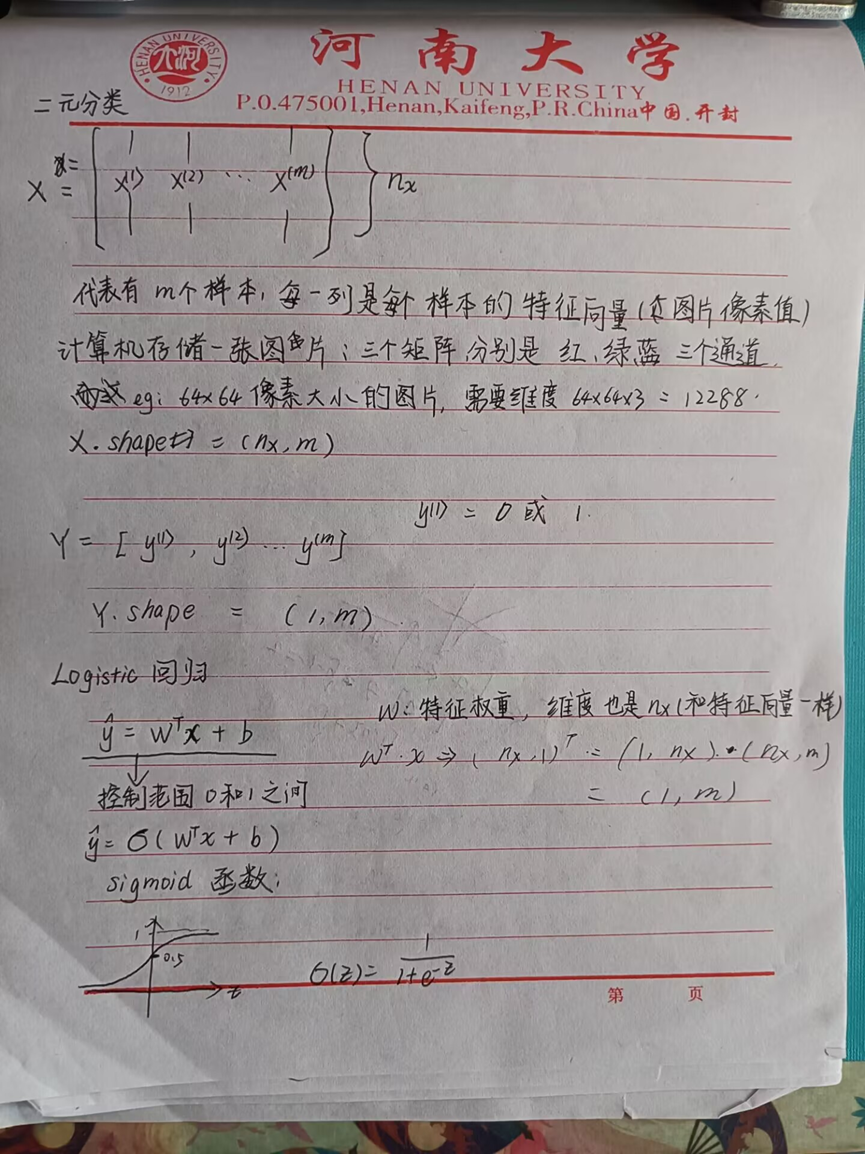 HENAN UNIVERSITY
河大
1912
河南大学
HENAN UNIVERSITY
P.O.475001,Henan,Kaifeng,P.R.China中国.开封
二元分类
X = [ x⁽¹⁾ x⁽²⁾ ... x⁽ᵐ⁾ ] } nx
代表有 m个样本, 每一列是每个 样本的 特征向量(图片像素值)
计算机存储一张图片: 三个矩阵,分别是 红、绿蓝 三个通道.
eg: 64x64 像素大小的图片, 需要维度 64x64x3 = 12288.
X.shape = (nx, m)
y⁽¹⁾ = 0 或 1.
Y = [ y⁽¹⁾, y⁽²⁾ ... y⁽ᵐ⁾ ]
Y.shape = (1, m)
Logistic 回归
w: 特征权重, 维度也是 nx(和特征向量一样)
ŷ = wᵀx + b
wᵀ·x ⇒ (nx,1)ᵀ = (1, nx)·(nx, m)
= (1, m)
控制范围 0和1之间
ŷ = σ(wᵀx + b)
sigmoid 函数:
1
0.5
z
σ(z) = 1/(1+e⁻ᶻ)
第 页